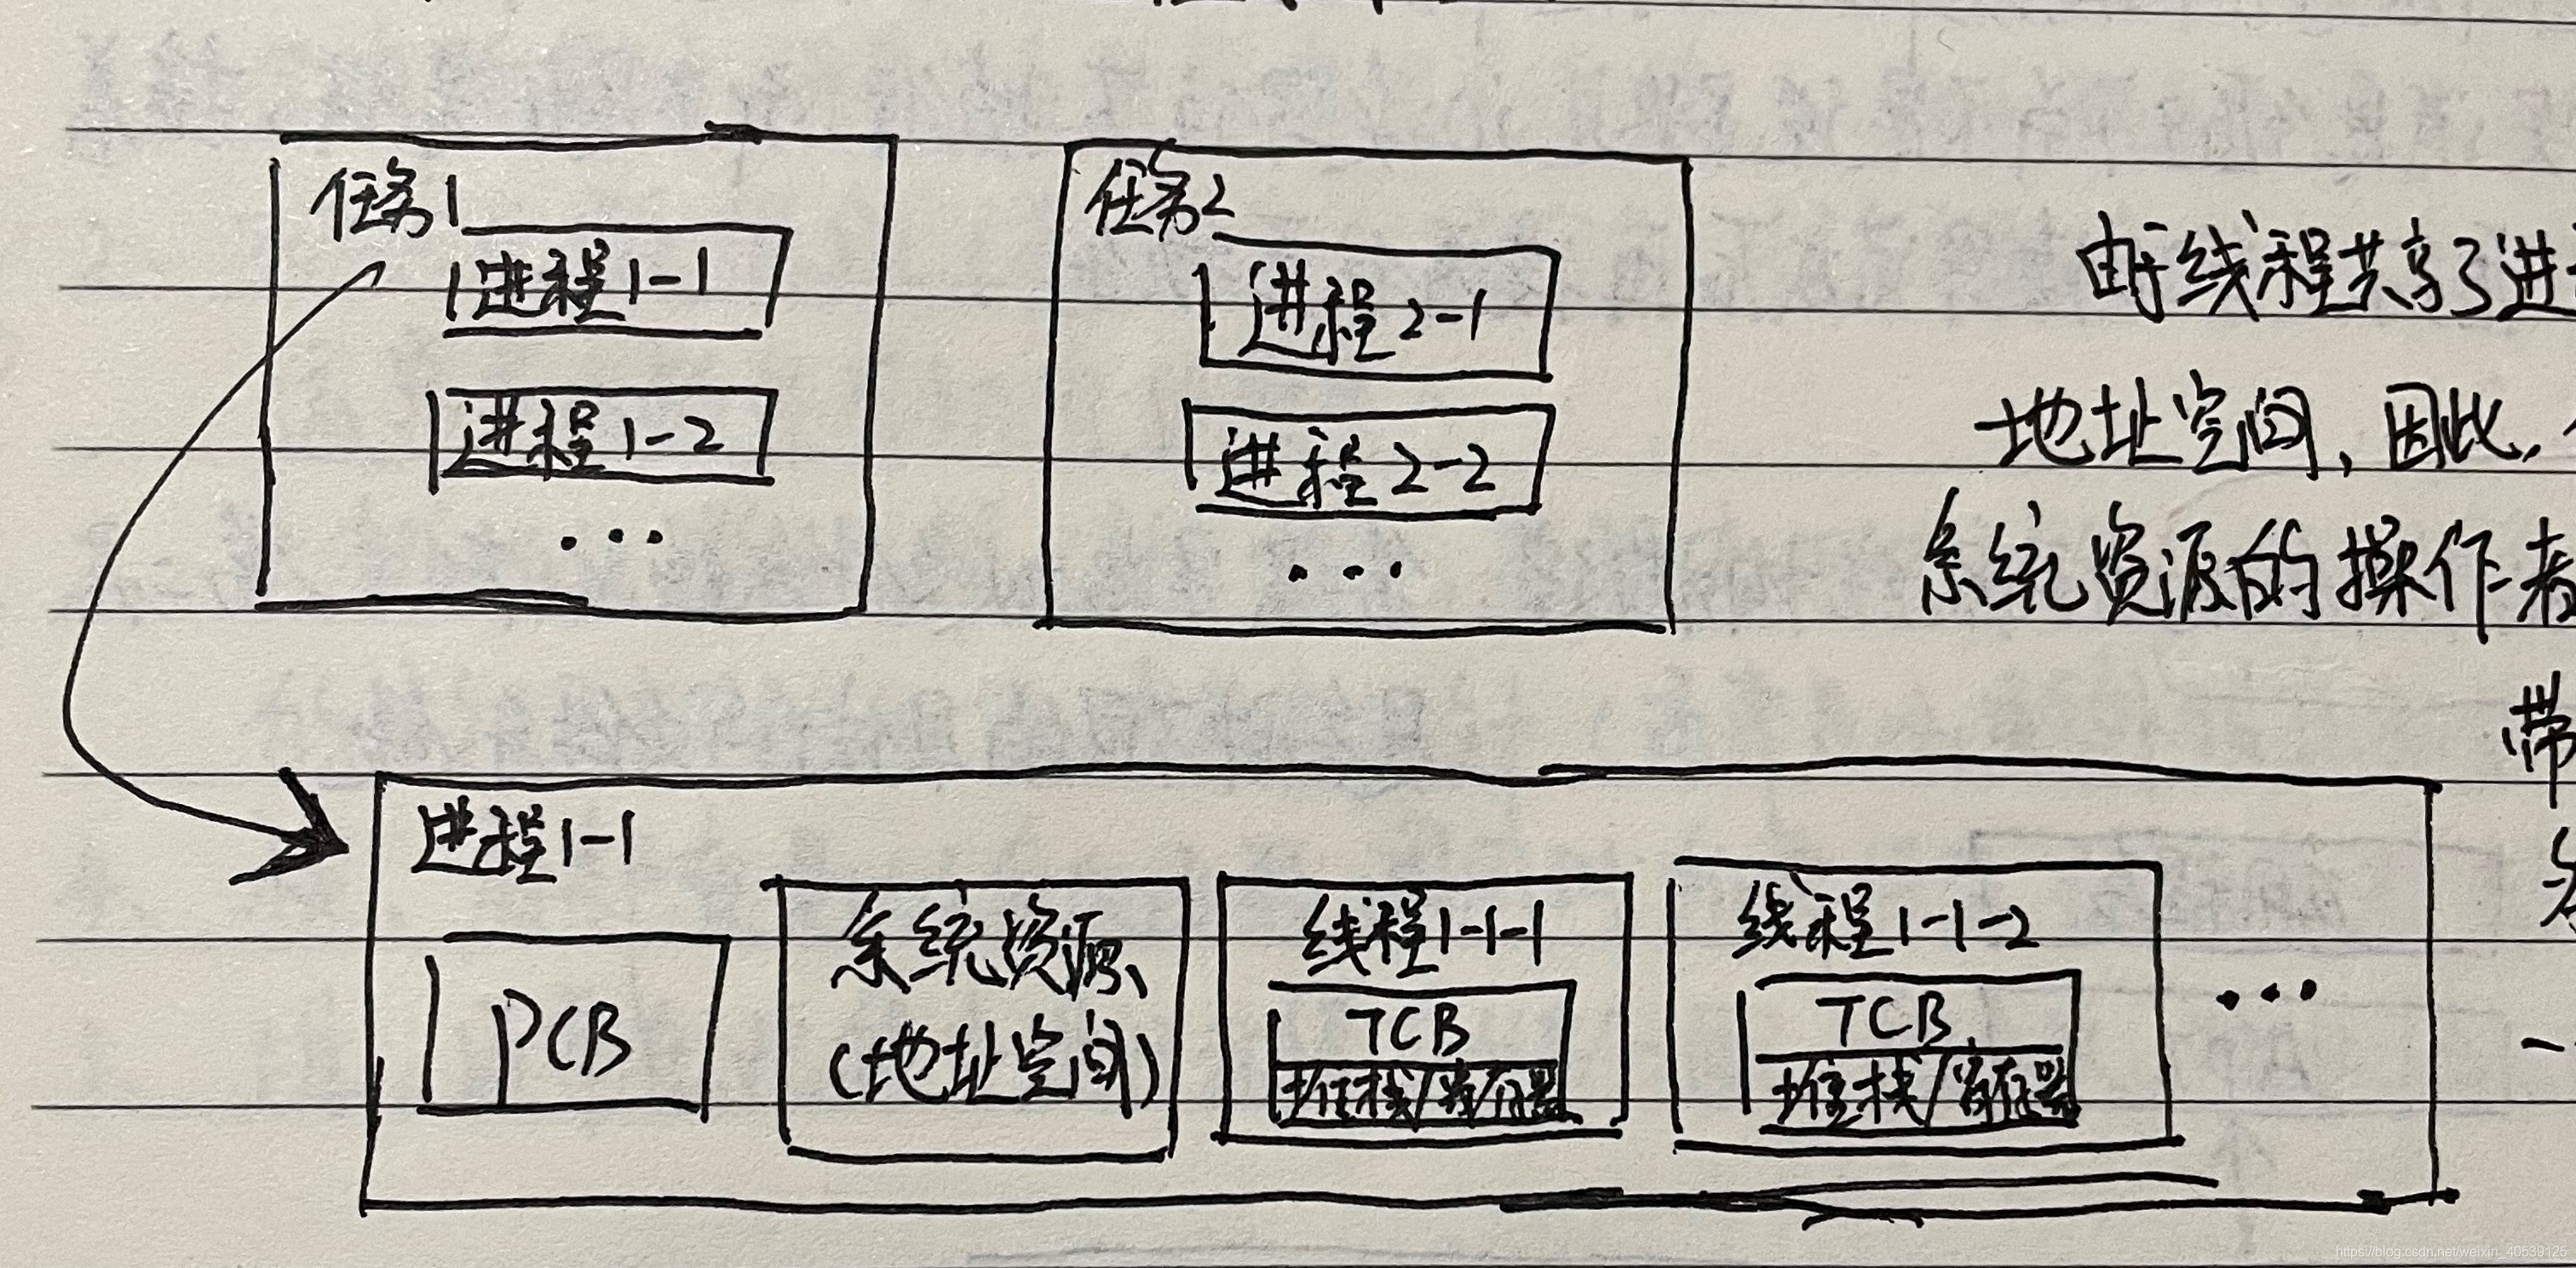 任务1
进程1-1
进程1-2
...
任务2
进程2-1
进程2-2
...
由于线程共享了进
地址空间,因此,
系统资源的操作者
带
进程1-1
PCB
系统资源
(地址空间)
线程1-1-1
TCB
堆栈/寄存器
线程1-1-2
TCB
堆栈/寄存器
...
https://blog.csdn.net/weixin_40539125